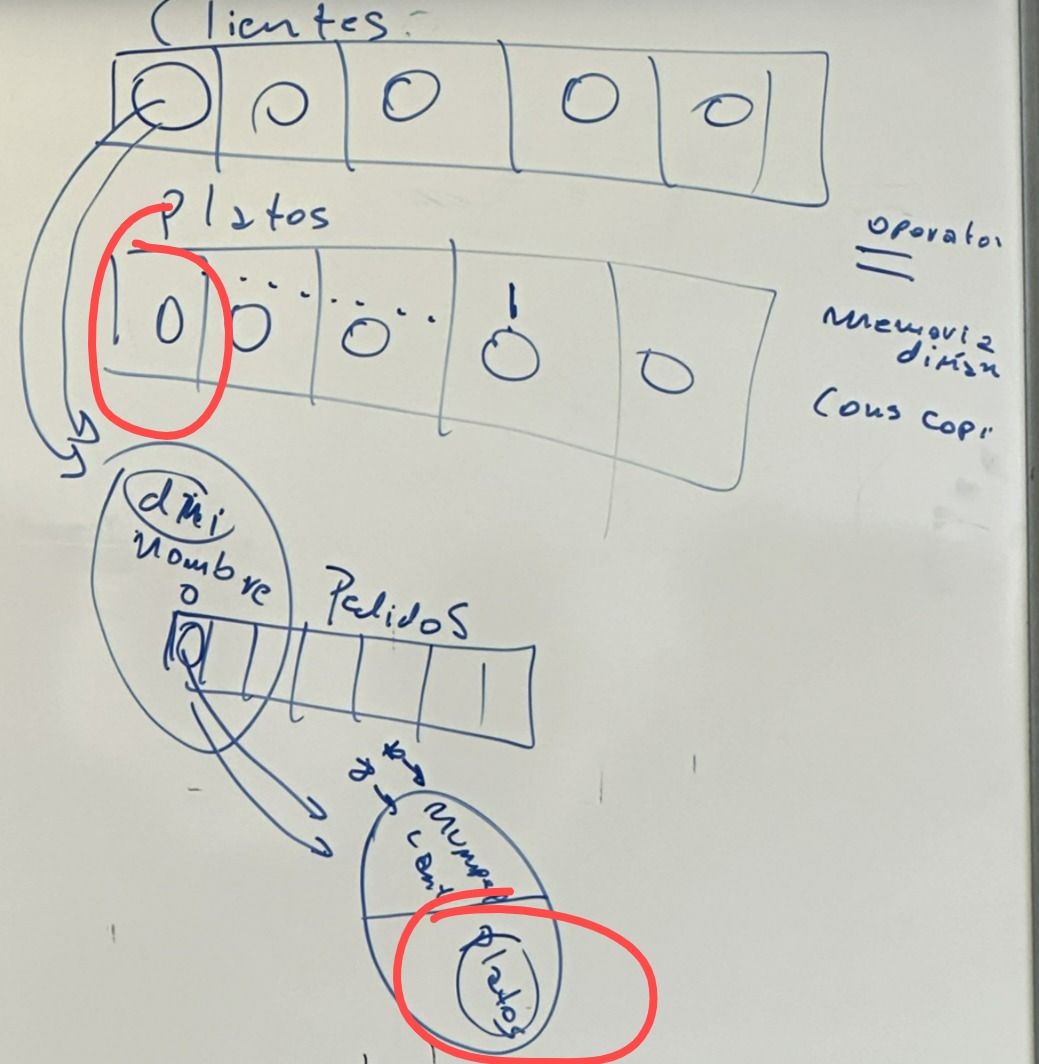 Clientes
Platos
operator
=
memoria
dinám
Cons copi
dni
Nombre
Pedidos
cant
Platos